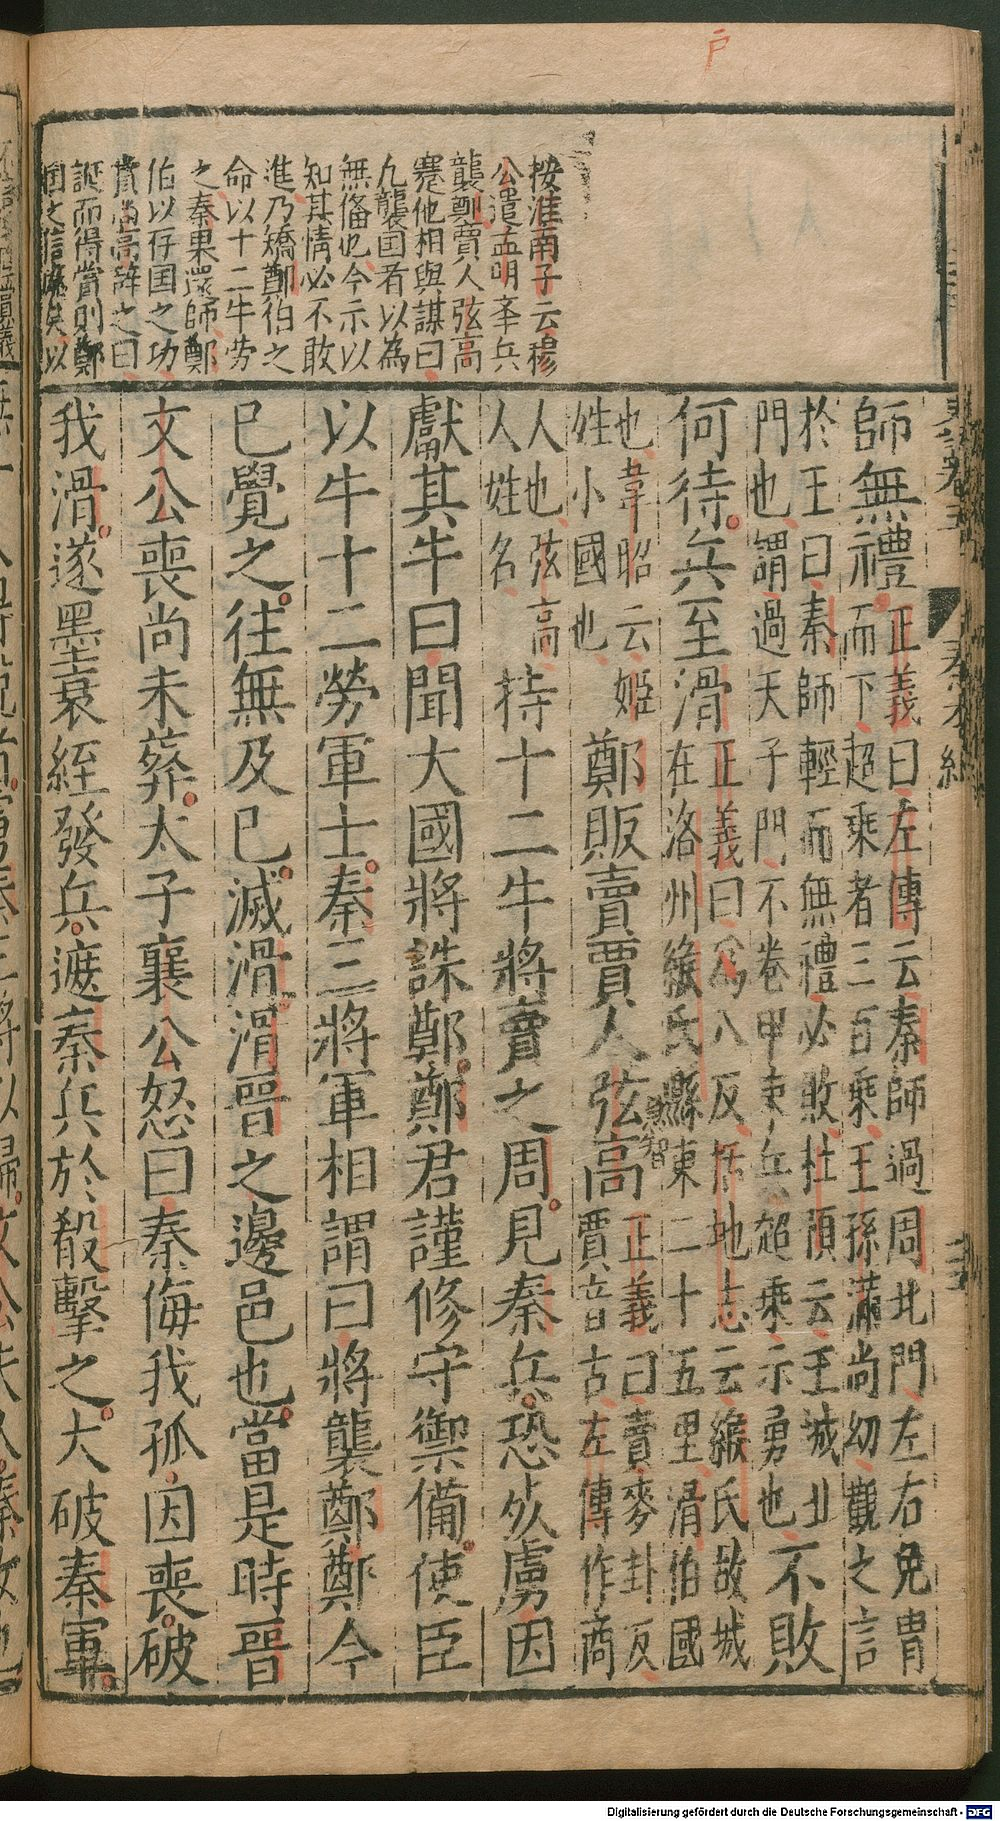 按淮南子云穆
公遣孟明率兵
襲鄭賈人弦高
蹇他相與謀曰
凢襲国者以為
無俻也今示以
知其情必不敢
進乃矯鄭伯之
命以十二牛勞
之秦果還師鄭
伯以存国之功
賞高高辭之曰
誕而得賞則鄭
国之信廢矣以
史記卷五 秦本紀
師無禮正義曰左傳云秦師過周北門左右免冑
而下超乘者三百乘王孫滿尚幼觀之言
於王曰秦師輕而無禮必敗杜預云王城北
門也謂過天子門不卷甲束兵超乘示勇也不敗
何待兵至滑正義曰為八反括地志云緱氏故城
在洛州緱氏縣東二十五里滑伯國
也韋昭云姬
姓小國也鄭販賣賈人弦高正義曰賣麥卦反
賈音古左傳作商
人也弦高
人姓名持十二牛將賣之周見秦兵恐死虜因
獻其牛曰聞大國將誅鄭鄭君謹修守禦備使臣
以牛十二勞軍士秦三將軍相謂曰將襲鄭鄭今
已覺之往無及已滅滑滑晉之邊邑也當是時晉
文公喪尚未葬太子襄公怒曰秦侮我孤因喪破
我滑遂墨衰絰發兵遮秦兵於殽擊之大破秦軍
Digitalisierung gefördert durch die Deutsche Forschungsgemeinschaft - DFG